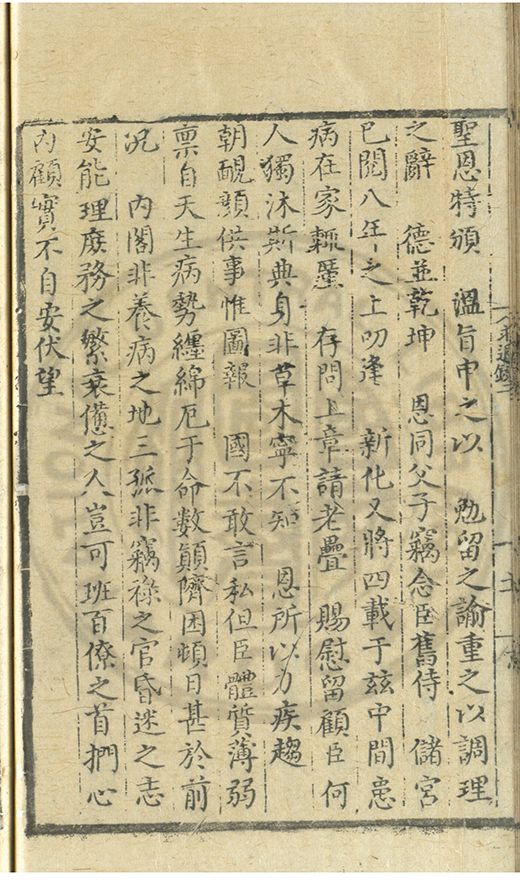 聖恩特頒　溫旨申之以　勉留之諭重之以調理
之辭　德並乾坤　恩同父子竊念臣舊侍　儲宮
已閱八年之上叨逢　新化又將四載于玆中間患
病在家輒廑　存問上章請老疊　賜慰留顧臣何
人獨沐斯典身非草木寧不知　恩所以力疾趨
朝靦顏供事惟圖報　國不敢言私但臣體質薄弱
禀自天生病勢纏綿厄于命數顛隮困頓日甚於前
況　內閣非養病之地三孤非竊祿之官昏迷之志
安能理庶務之繁衰憊之人豈可班百僚之首捫心
內顧實不自安伏望